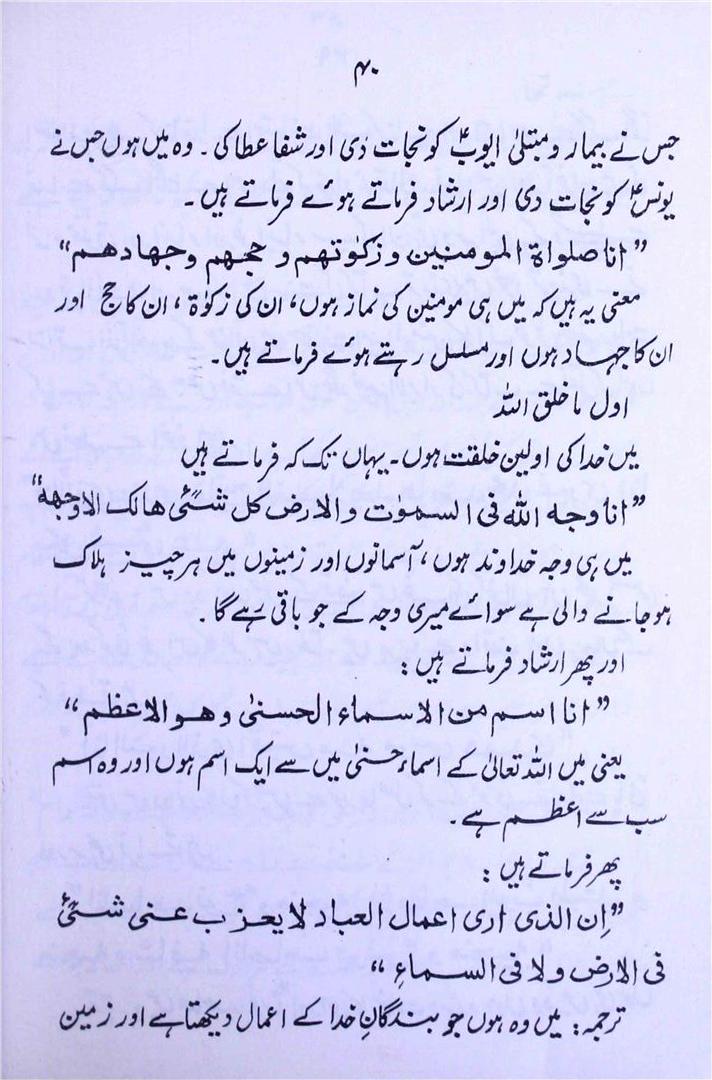 ۴۰
جس نے بیمار و مبتلیٰ ایوبؑ کو نجات دی اور شفا عطا کی ۔ وہ میں ہوں جس نے
یونسؑ کو نجات دی اور ارشاد فرماتے ہوئے فرماتے ہیں ۔
”انا صلواة المومنین و زکوٰتهم و حجهم وجهادهم“
معنی یہ ہیں کہ میں ہی مومنین کی نماز ہوں، ان کی زکوٰة ، ان کا حج اور
ان کا جہاد ہوں اور مسلسل رہتے ہوئے فرماتے ہیں ۔
اول ما خلق اللہ
میں خدا کی اولین خلقت ہوں ۔ یہاں تک کہ فرماتے ہیں
”انا وجه الله فی السمٰوٰت والارض کل شئیٍ هالک الا وجهه“
میں ہی وجہ خداوند ہوں ، آسمانوں اور زمینوں میں ہر چیز ہلاک
ہو جانے والی ہے سوائے میری وجہ کے جو باقی رہے گا ۔
اور پھر ارشاد فرماتے ہیں :
”انا اسم من الاسماء الحسنیٰ وهو الاعظم“
یعنی میں اللہ تعالیٰ کے اسماء حسنیٰ میں سے ایک اسم ہوں اور وہ اسم
سب سے اعظم ہے ۔
پھر فرماتے ہیں :
”اِن الذی اری اعمال العباد لا یعزب عنی شئیٌ
فی الارض ولا فی السماءِ“
ترجمہ : میں وہ ہوں جو بندگانِ خدا کے اعمال دیکھتا ہے اور زمین